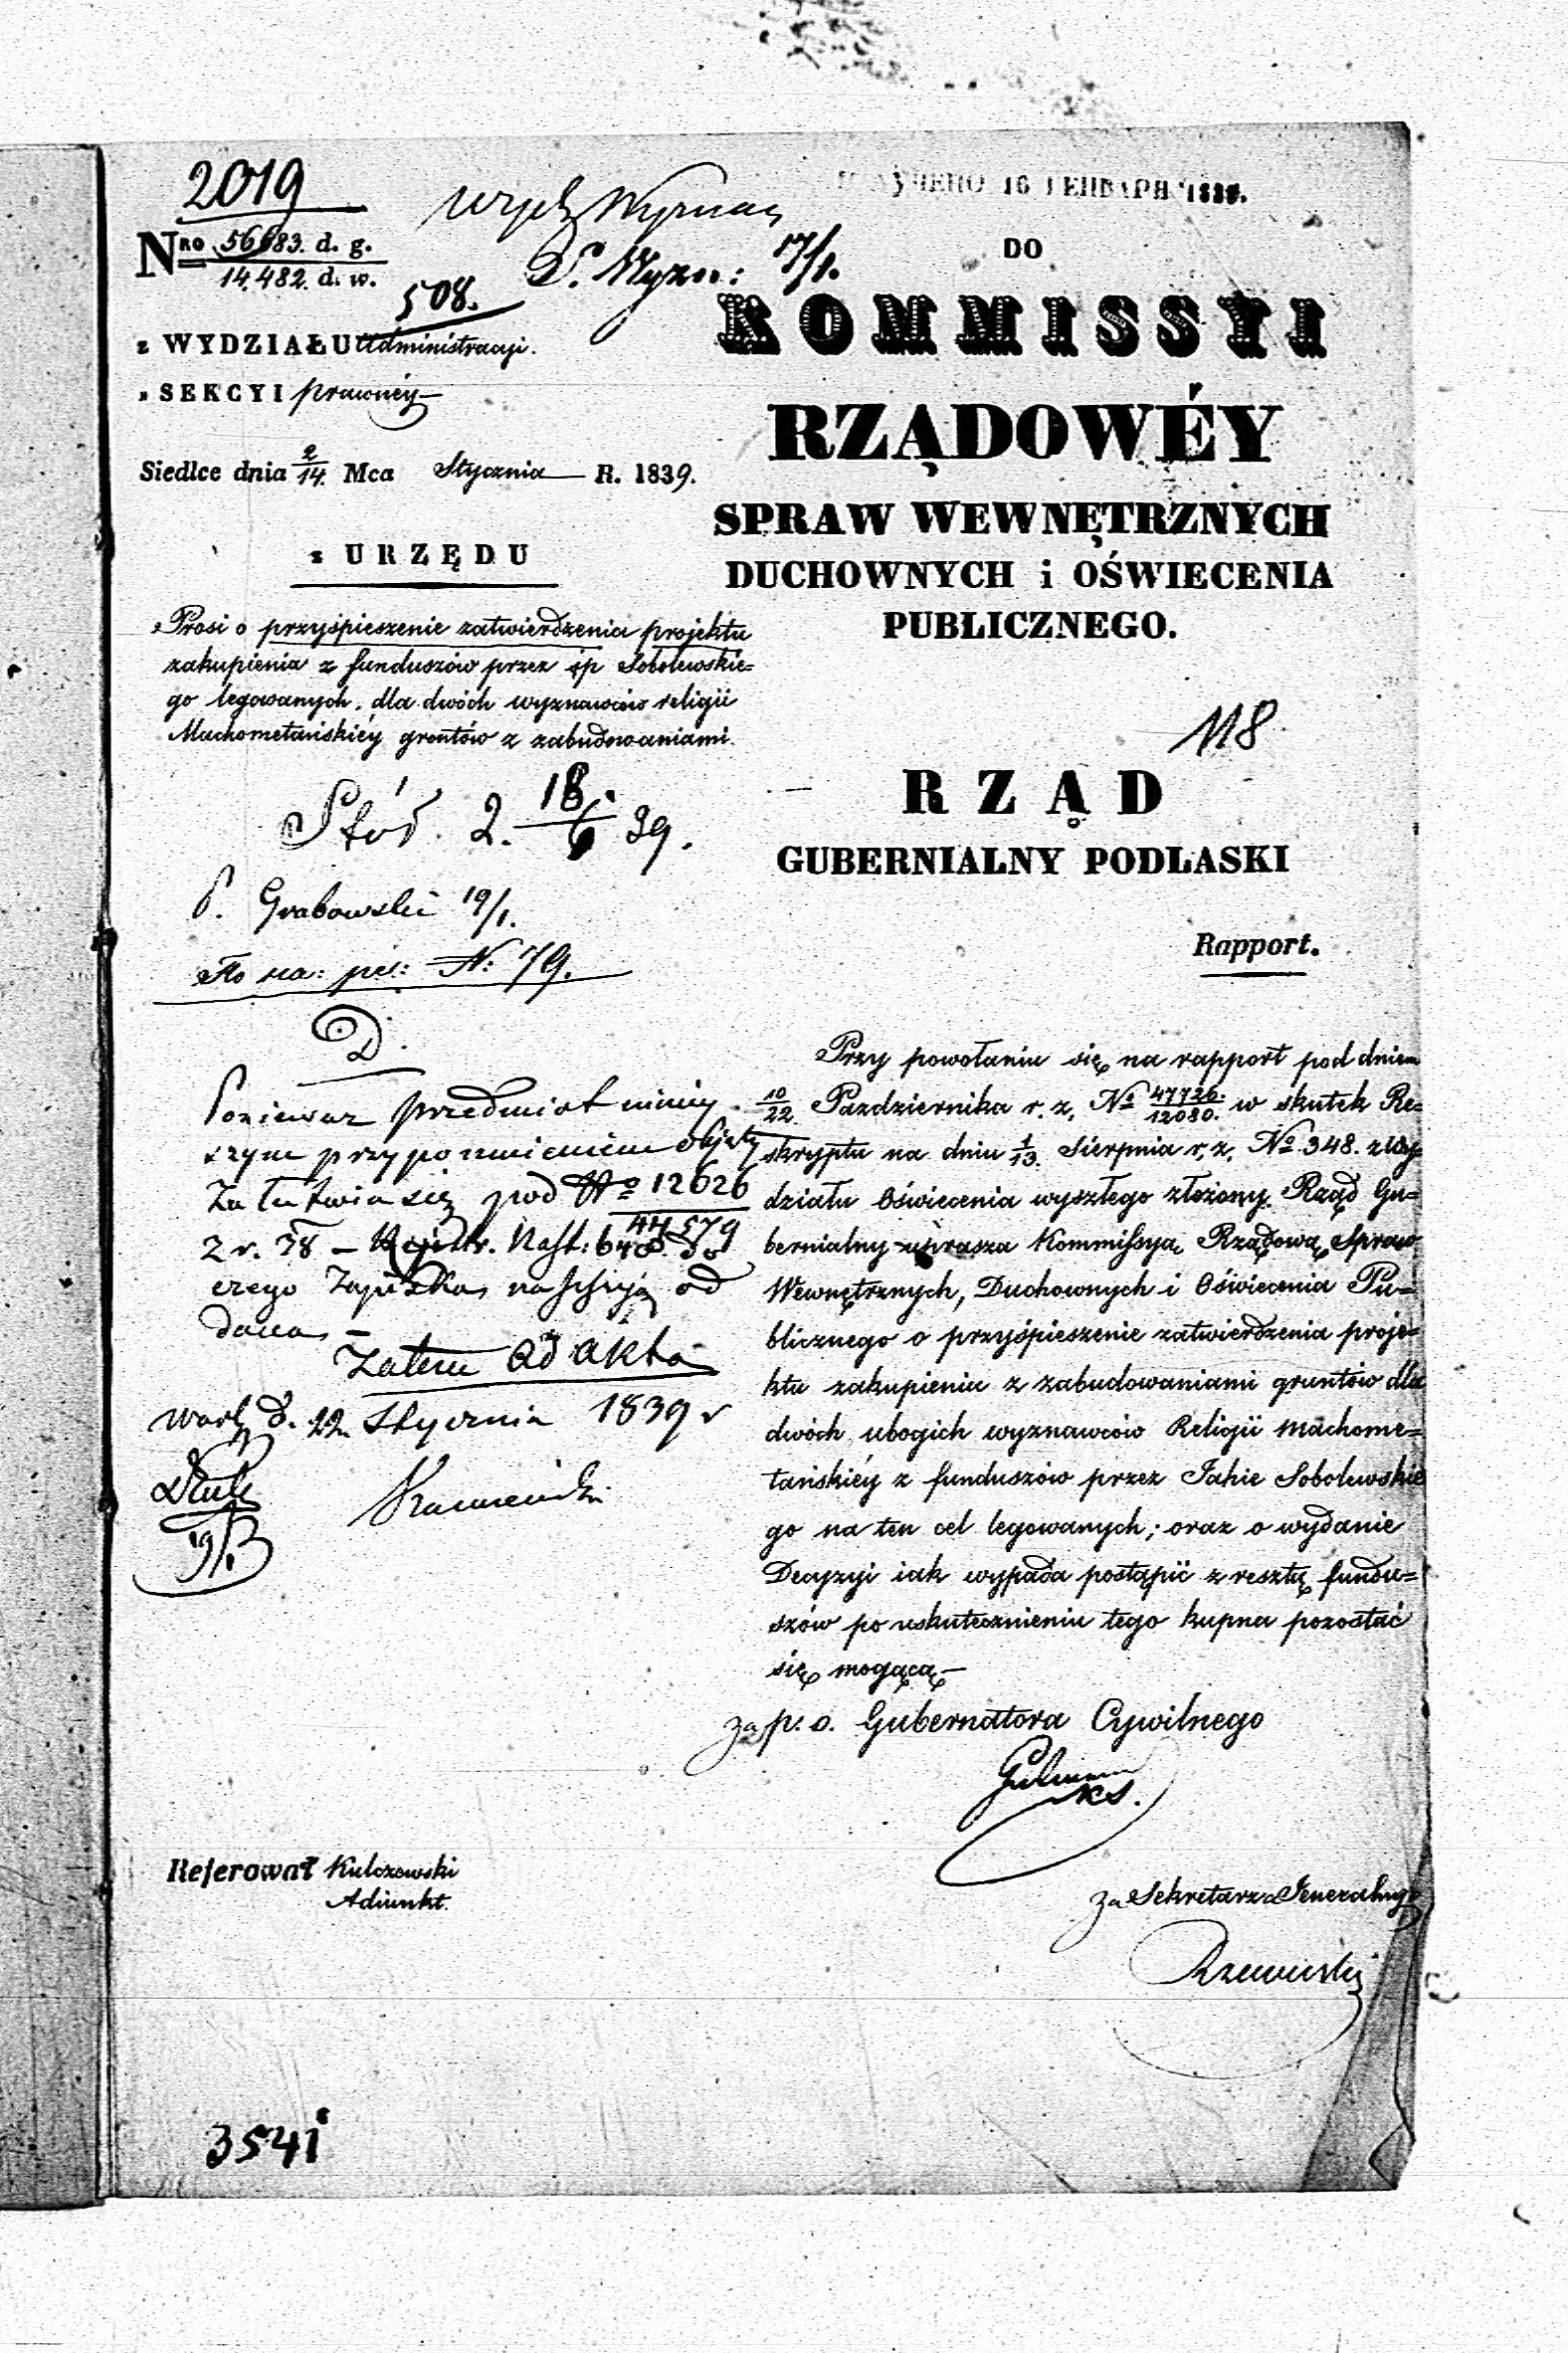 2019
Nro 56683. d. g.
14,482. d. w.
508.
z WYDZIAŁU Administracyi.
" SEKCYI prawnéy
Siedlce dnia 2/14. Mca Stycznia R. 1839.
z URZĘDU
Prosi o przyśpieszenie zatwierdzenia projektu
zakupienia z funduszów przez śp Sobolewskie=
go legowanych, dla dwóch wyznawców religii
Machometańskiéy grontów z zabudowaniami.
18.
2. 6 39.
P. Grabowski 19/1.
N: 79.
D.
Poniewaz przedmiot niniey
szym przypomnieniem objęty
załatwia się pod No 12626
44579
z r. 38 –
czego Zapiska na Sessyją od
dana –
Zatem ad akta
d. 22 Stycznia 1839 r
19/3
Referował Kulczewski
Adiunkt.
3541
16 ГЕНВАРЯ
17/1.
DO
KOMMISSYI
RZĄDOWÉY
SPRAW WEWNĘTRZNYCH
DUCHOWNYCH i OŚWIECENIA
PUBLICZNEGO.
118
RZĄD
GUBERNIALNY PODLASKI
Rapport.
Przy powołaniu się na rapport pod dniem
10/22 Pazdziernika r. z. No 47726./12080. w skutek Re=
skryptu na dniu 1/13. Sierpnia r. z. No 348. z Wy=
działu Oświecenia wyszłego złożony. Rząd Gu=
bernialny uprasza Kommissyą Rządową Spraw
Wewnętrznych, Duchownych i Oświecenia Pu=
blicznego o przyśpieszenie zatwierdzenia proje=
ktu zakupieniu z zabudowaniami gruntów dla
dwóch ubogich wyznawców Religii Machome=
tańskiéy z funduszów przez Jahie Sobolewskie
go na ten cel legowanych; oraz o wydanie
Decyzyi iak wypada postąpić z resztą fundu=
szów po uskutecznieniu tego kupna pozostać
się mogącą –
za p. o. Gubernatora Cywilnego
za Sekretarza Jeneralnego
Rzewuski